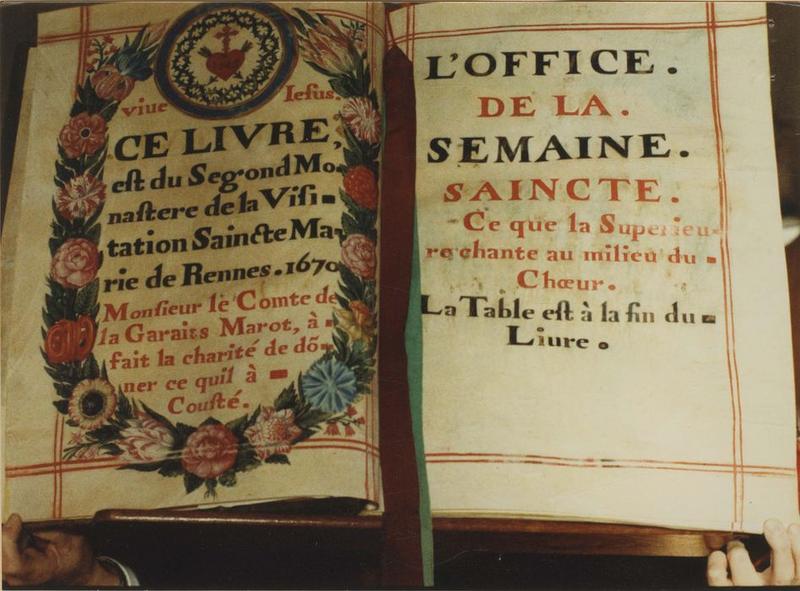 viue Iesus.
CE LIVRE,
est du Segond Mo-
nastere de la Visi-
tation Saincte Ma-
rie de Rennes. 1670
Monsieur le Comte de
la Garaits Marot, à
fait la charité de dõ-
ner ce quil à
Cousté.
L'OFFICE.
DE LA.
SEMAINE.
SAINCTE.
Ce que la Superieu-
re chante au milieu du
Chœur.
La Table est à la fin du
Liure.